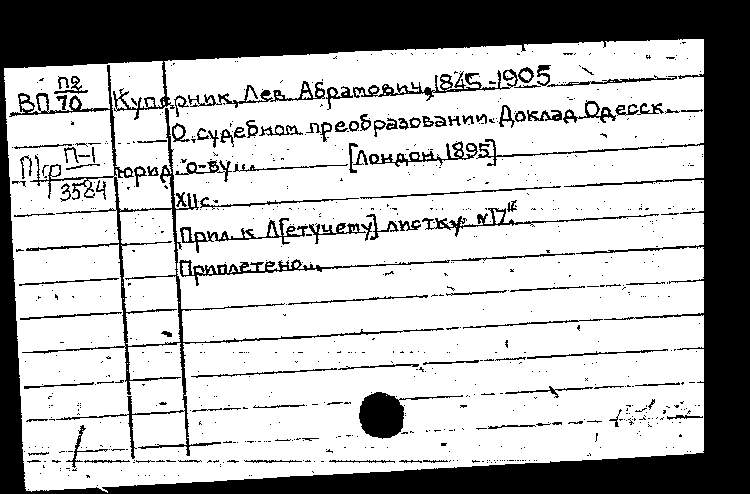 ВП П2/70 Куперник, Лев Абрамович, 1845-1905
О судебном преобразовании. Доклад Одесск.
П/ф П-1/3584 юрид. о-ву... [Лондон, 1895]
XIIс.
Прил. к Л[етучему] листку №17.
Приплетено...